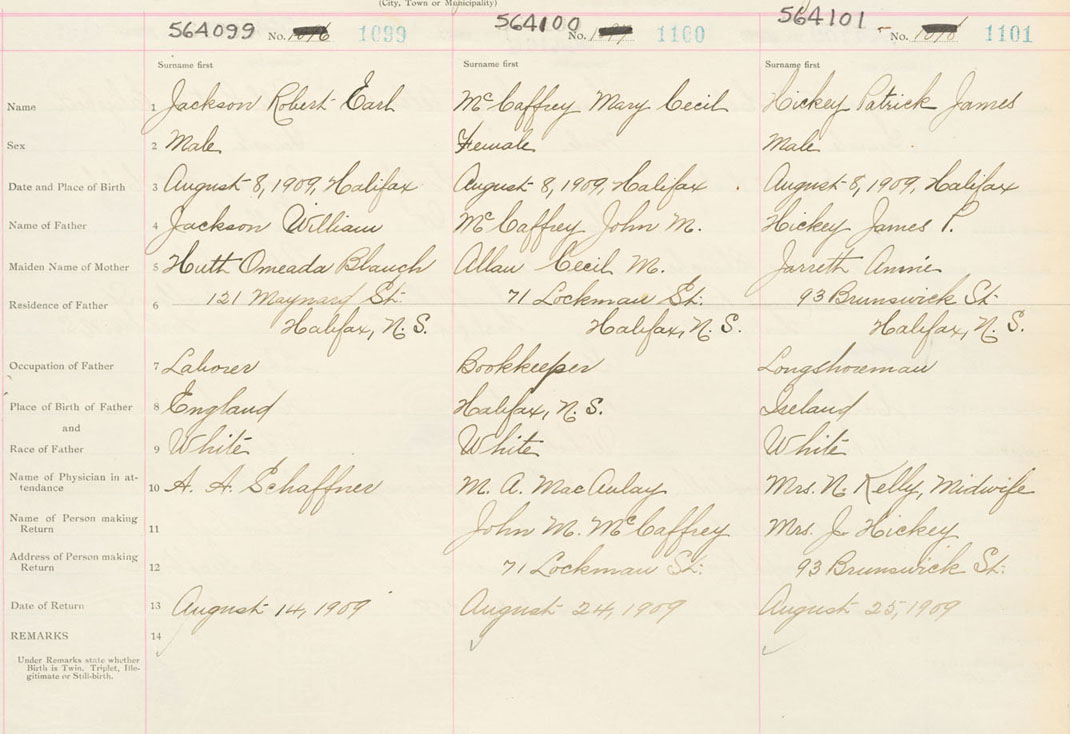 (City, Town or Municipality)
564099 No. 1099
564100 No. 1100
564101 No. 1101
Surname first Surname first Surname first
Name 1 Jackson Robert Earl McCaffrey Mary Cecil Hickey Patrick James
Sex 2 Male Female Male
Date and Place of Birth 3 August 8, 1909, Halifax August 8, 1909, Halifax August 8, 1909, Halifax
Name of Father 4 Jackson William McCaffrey John M. Hickey James P.
Maiden Name of Mother 5 Huth Omeada Blanch Allan Cecil M. Annie
Residence of Father 6 121 Maynard St. 71 Lockman St. 93 Brunswick St.
Halifax, N.S. Halifax, N.S. Halifax, N.S.
Occupation of Father 7 Laborer Bookkeeper Longshoreman
Place of Birth of Father 8 England Halifax, N.S. Ireland
and
Race of Father 9 White White White
Name of Physician in at-
tendance 10 A. A. Schaffner M. A. MacAulay Mrs. N. Kelly, Midwife
Name of Person making
Return 11 John M. McCaffrey Mrs. J. Hickey
Address of Person making
Return 12 71 Lockman St. 93 Brunswick St.
Date of Return 13 August 14, 1909 August 24, 1909 August 25, 1909
REMARKS 14
Under Remarks state whether
Birth is Twin, Triplet, Ille-
gitimate or Still-birth.